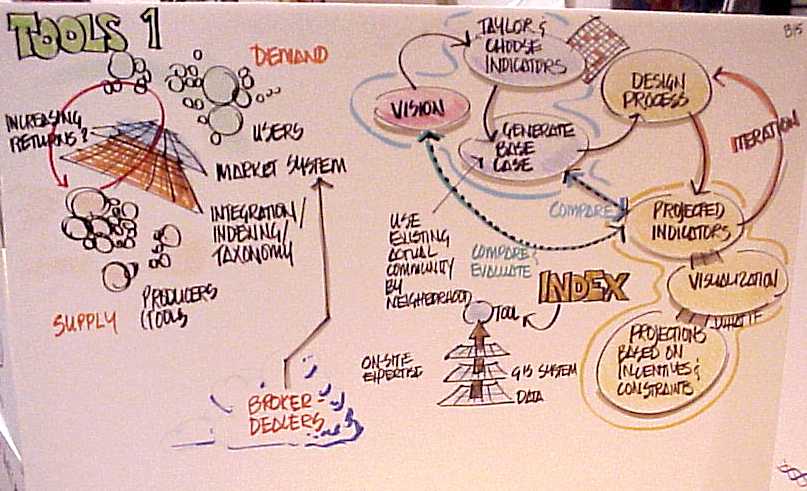 TOOLS 1
DEMAND
USERS
INCREASING
RETURNS?
MARKET SYSTEM
INTEGRATION/
INDEXING/
TAXONOMY
PRODUCERS
(TOOLS
SUPPLY
BROKER
DEALERS
B15
TAYLOR &
CHOOSE
INDICATORS
VISION
DESIGN
PROCESS
GENERATE
BASE
CASE
ITERATION
COMPARE
PROJECTED
INDICATORS
USE
EXISTING
ACTUAL
COMMUNITY
BY
NEIGHBORHOOD
COMPARE &
EVALUATE
INDEX
VISUALIZATION
WHAT IF
TOOL
PROJECTIONS
BASED ON
INCENTIVES &
CONSTRAINTS
ON-SITE
EXPERTISE
GIS SYSTEM
DATA